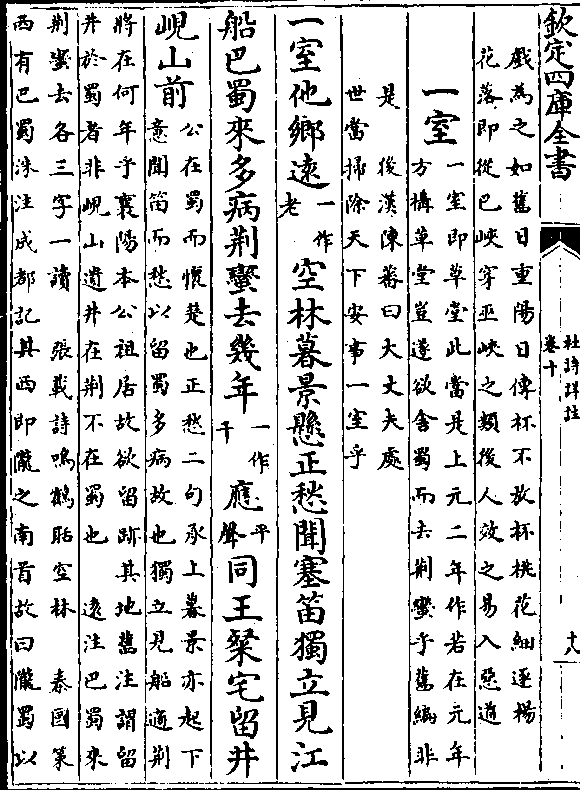 欽定四庫全書
杜詩詳註
卷十
十八
戲為之如舊日重陽日傳杯不放杯桃花細逐楊
花落即從巴峽穿巫峽之類後人效之易入惡道
一室
一室即草堂此當是上元二年作若在元年
方構草堂豈遽欲舍蜀而去荆蠻乎舊編非
是 後漢陳蕃曰大丈夫處
世當掃除天下安事一室乎
一室他鄉遠
一作
老
空林暮景懸正愁聞塞笛獨立見江
船巴蜀來多病荆蠻去幾年
一作
千
應
平
聲
同王粲宅留井
峴山前
公在蜀而懷楚也正愁二句承上暮景亦起下
意聞笛而愁以留蜀多病故也獨立見船適荆
將在何年乎襄陽本公祖居故欲留跡其地舊注謂留
井於蜀者非峴山遺井在荆不在蜀也 遠注巴蜀來
荆蠻去各三字一讀 張載詩鳴鶴聒空林 秦國策
西有巴蜀洙注成都記其西即隴之南首故曰隴蜀以